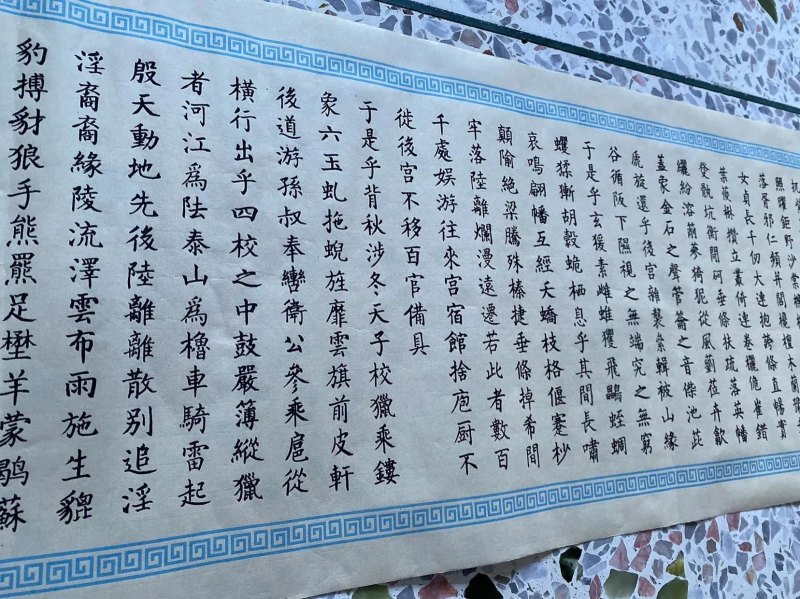 照曜鉅野沙棠櫟
落胥邪仁頻并閭欃檀木蘭豫
女貞長千仞大連抱夸條直暢實
葉葰楙攢立叢倚連卷欐佹崔錯
癹骫坑衡閜砢垂條扶疏落英幡
纚紛溶萷蔘猗狔從風藰莅卉歙
蓋象金石之聲管籥之音傑池茈
虒旋還乎後宮雜襲絫輯被山緣
谷循阪下隰視之無端究之無窮
于是乎玄猨素雌蜼玃飛鸓蛭蜩
蠼猱獑胡豰蛫栖息乎其間長嘯
哀鳴翩幡互經夭蟜枝格偃蹇杪
顛隃絕梁騰殊榛捷垂條掉希間
牢落陸離爛漫遠遷若此者數百
千處娛游往來宮宿館捨庖厨不
徙後宮不移百官備具
于是乎背秋涉冬天子校獵乘鏤
象六玉虬拖蜺旌靡雲旗前皮軒
後道游孫叔奉轡衛公參乘扈從
橫行出乎四校之中鼓嚴簿縱獵
者河江爲阹泰山爲櫓車騎雷起
殷天動地先後陸離離散別追淫
淫裔裔緣陵流澤雲布雨施生貔
豹搏豺狼手熊羆足壄羊蒙鶡蘇